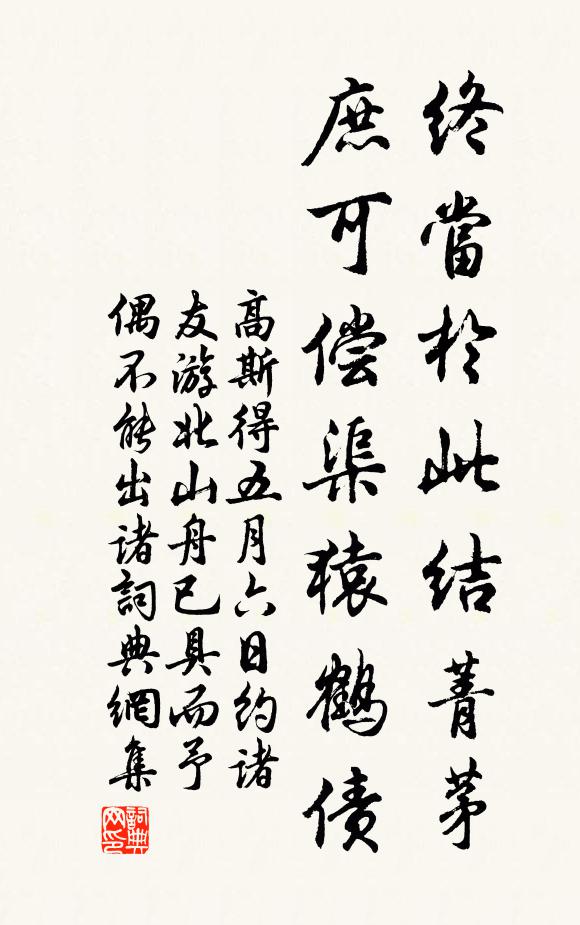 終當於此结菁茅
庶可偿渠猿鶴债
高斯得五月六日约諸
友游北山舟已具而予
偶不能出诸詞典網集
詞典网印